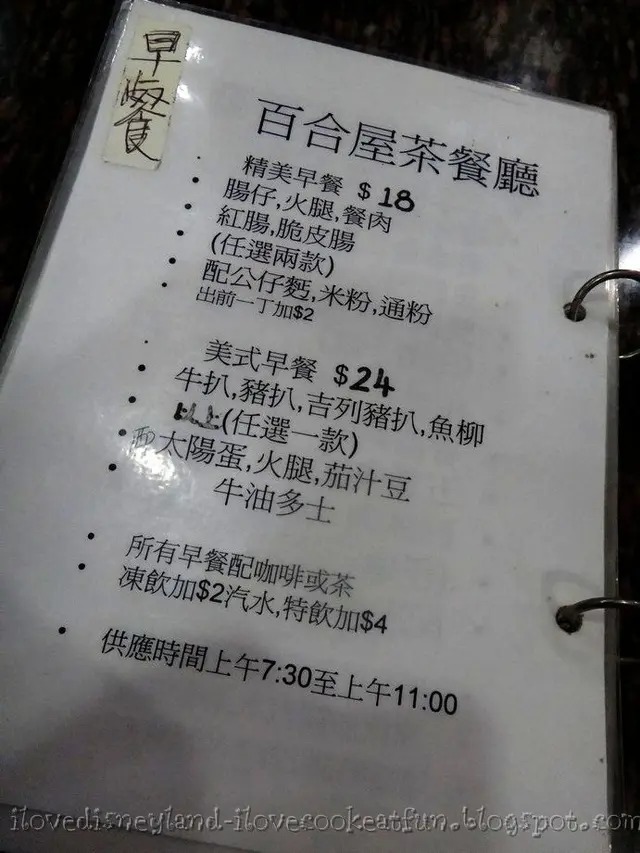 早餐
百合屋茶餐廳
精美早餐 $18
腸仔,火腿,餐肉
紅腸,脆皮腸
(任選兩款)
配公仔麪,米粉,通粉
出前一丁加$2
美式早餐 $24
牛扒,豬扒,吉列豬扒,魚柳
以上(任選一款)
配太陽蛋,火腿,茄汁豆
牛油多士
所有早餐配咖啡或茶
凍飲加$2汽水,特飲加$4
供應時間上午7:30至上午11:00
ilovedisneyland-ilovecookeatfun.blogspot.com